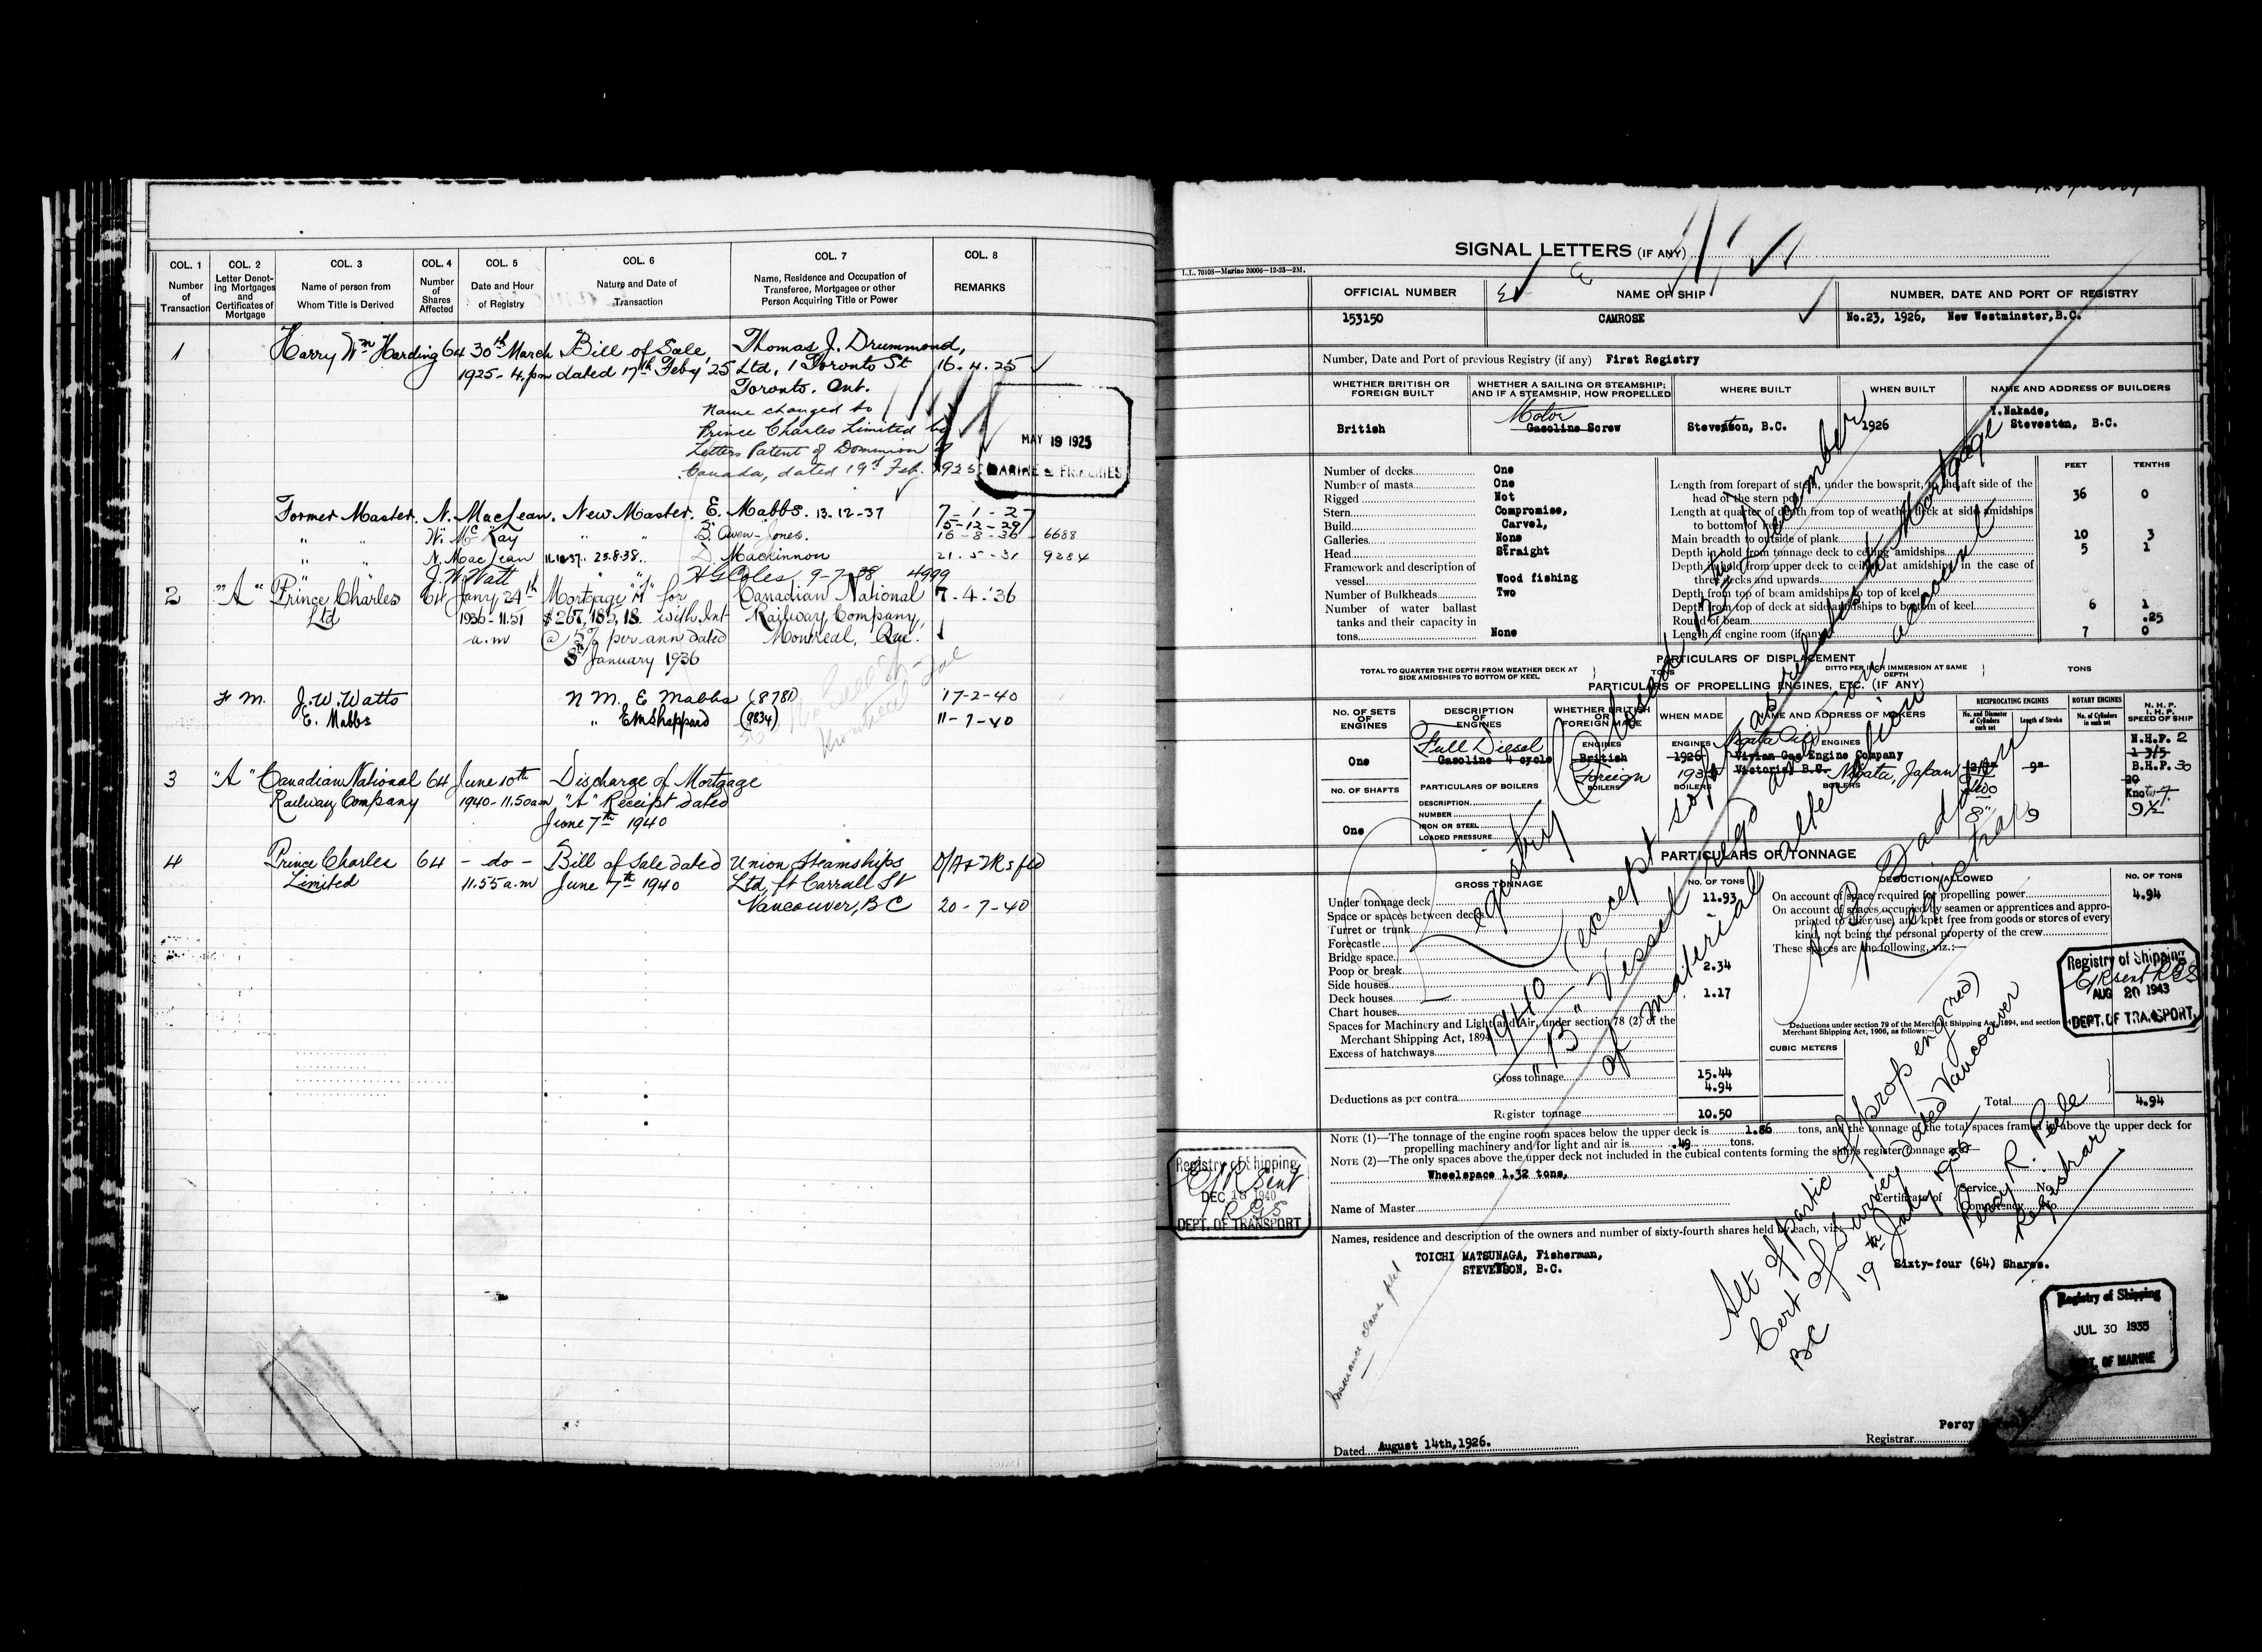 COL. 1 COL. 2 COL. 3 COL. 4 COL. 5 COL. 6 COL. 7 COL. 8
Number of Transaction
Letter Denoting Mortgages and Certificates of Mortgage
Name of person from Whom Title is Derived
Number of Shares Affected
Date and Hour of Registry
Nature and Date of Transaction
Name, Residence and Occupation of Transferee, Mortgagee or other Person Acquiring Title or Power
REMARKS
1 Harry Wm Harding 64 30th March Bill of Sale, Thomas J. Drummond,
1925 - 4, pm dated 17th Feby '25 Ltd, 1 Toronto St 16.4.25
Toronto. Ont.
Name changed to
Prince Charles Limited by
Letters Patent of Dominion of
Canada, dated 19th Feb. 1925
MAY 19 1925
MARINE & FISHERIES
Former Master. N. MacLean. New Master. E. Mabbs. 13-12-37 7-1-27
15-12-29
W. McKay " " B. Owen-Jones. 16-8-30 6688
" " N. MacLean 11.12.37. 23.8.38. D. Mackinnon 21-5-31 9284
J. W. Watt " " H G Coles 9-7-38 4999
2 "A" Prince Charles 64 Jany 24th Mortgage "A" for Canadian National 7.4.'36
Ltd 1936-11.51 $267,185.18 with Int Railway Company,
a.m @ 5% per ann dated Montreal, Que.
8th January 1936
F M. J. W. Watts N M. E Mabbs (8781) 17-2-40
E. Mabbs " E M Sheppard (9834) 11-7-40
3 "A" Canadian National 64 June 10th Discharge of Mortgage
Railway Company 1940-11.50am "A" Receipt dated
June 7th 1940
4 Prince Charles 64 - do - Bill of Sale dated Union Steamships
Limited 11.55 a.m June 7th 1940 Ltd, ft Carrall St
Vancouver, BC 20-7-40
SIGNAL LETTERS (IF ANY)
I.L. 70108—Marine 20006—12-23—2M.
OFFICIAL NUMBER NAME OF SHIP NUMBER, DATE AND PORT OF REGISTRY
153150 CAMROSE No.23, 1926, New Westminster,B.C.
Number, Date and Port of previous Registry (if any) First Registry
WHETHER BRITISH OR FOREIGN BUILT
WHETHER A SAILING OR STEAMSHIP; AND IF A STEAMSHIP, HOW PROPELLED
WHERE BUILT WHEN BUILT NAME AND ADDRESS OF BUILDERS
British
Motor
Gasoline Screw
Steveston, B.C. 1926
Y.Nakade,
Steveston, B.C.
FEET TENTHS
Number of decks One
Number of masts One
Rigged Not
Stern Compromise,
Build Carvel,
Galleries None
Head Straight
Framework and description of
vessel Wood fishing
Number of Bulkheads Two
Number of water ballast
tanks and their capacity in
tons None
Length from forepart of stem, under the bowsprit, to the aft side of the
head of the stern post 36 0
Length at quarter of depth from top of weather deck at side amidships
to bottom of keel
Main breadth to outside of plank 10 3
Depth in hold from tonnage deck to ceiling amidships 5 1
Depth in hold from upper deck to ceiling at amidships in the case of
three decks and upwards
Depth from top of beam amidships to top of keel
Depth from top of deck at side amidships to bottom of keel 6 1
Round of beam .25
Length of engine room (if any) 7 0
PARTICULARS OF DISPLACEMENT
TOTAL TO QUARTER THE DEPTH FROM WEATHER DECK AT SIDE AMIDSHIPS TO BOTTOM OF KEEL TONS
DITTO PER INCH IMMERSION AT SAME DEPTH TONS
PARTICULARS OF PROPELLING ENGINES, ETC. (IF ANY)
NO. OF SETS OF ENGINES
DESCRIPTION OF ENGINES
WHETHER BRITISH OR FOREIGN MADE
WHEN MADE
NAME AND ADDRESS OF MAKERS
RECIPROCATING ENGINES
No. and Diameter of Cylinders each set
Length of Stroke
ROTARY ENGINES
No. of Cylinders in each set
N. H. P.
I. H. P.
SPEED OF SHIP
One
Full Diesel
Gasoline 4 cycle
ENGINES
British
Foreign
ENGINES
1926
ENGINES
Vivian Gas Engine Company
Victoria, B.C. Niigata, Japan
9"
8" 9
N.H.P. 2
1 3/5
B.H.P. 30
20
Knots 7.
9½
NO. OF SHAFTS
One
PARTICULARS OF BOILERS
DESCRIPTION
NUMBER
IRON OR STEEL
LOADED PRESSURE
BOILERS BOILERS BOILERS
PARTICULARS OF TONNAGE
GROSS TONNAGE NO. OF TONS DEDUCTION ALLOWED NO. OF TONS
Under tonnage deck 11.93
Space or spaces between decks
Turret or trunk
Forecastle
Bridge space
Poop or break 2.34
Side houses
Deck houses 1.17
Chart houses
Spaces for Machinery and Light and Air, under section 78 (2) of the
Merchant Shipping Act, 1894
Excess of hatchways
Gross tonnage 15.44
Deductions as per contra 4.94
Register tonnage 10.50
On account of space required for propelling power 4.94
On account of spaces occupied by seamen or apprentices and appro-
priated to their use, and kpet free from goods or stores of every
kind, not being the personal property of the crew
These spaces are the following, viz.:—
Deductions under section 79 of the Merchant Shipping Act, 1894, and section
Merchant Shipping Act, 1906, as follows:—
CUBIC METERS
Total 4.94
Registry of Shipping
AUG 20 1943
DEPT. OF TRANSPORT.
NOTE (1)—The tonnage of the engine room spaces below the upper deck is 1.86 tons, and the tonnage of the total spaces framed in above the upper deck for
propelling machinery and for light and air is .49 tons.
NOTE (2)—The only spaces above the upper deck not included in the cubical contents forming the ship's register tonnage are
Wheelspace 1.32 tons,
Name of Master
Certificate of Service No.
Competency No.
Registry of Shipping
DEC 18 1940
DEPT. OF TRANSPORT
Names, residence and description of the owners and number of sixty-fourth shares held by each, viz:
TOICHI MATSUNAGA, Fisherman,
STEVESTON, B.C.
Sixty-four (64) Shares.
Registry closed 12th December
1940 (except so far as relates to Mortgage
"B" Vessel regd anew on account
of material alteration
Registrar
Alt of partic of prop eng (red)
Cert of Survey dated Vancouver
BC 19th July 1935
Percy R. Peele
Registrar
Insurance clause
Registry of Shipping
JUL 30 1935
DEPT. OF MARINE
Dated August 14th,1926.
Registrar Percy